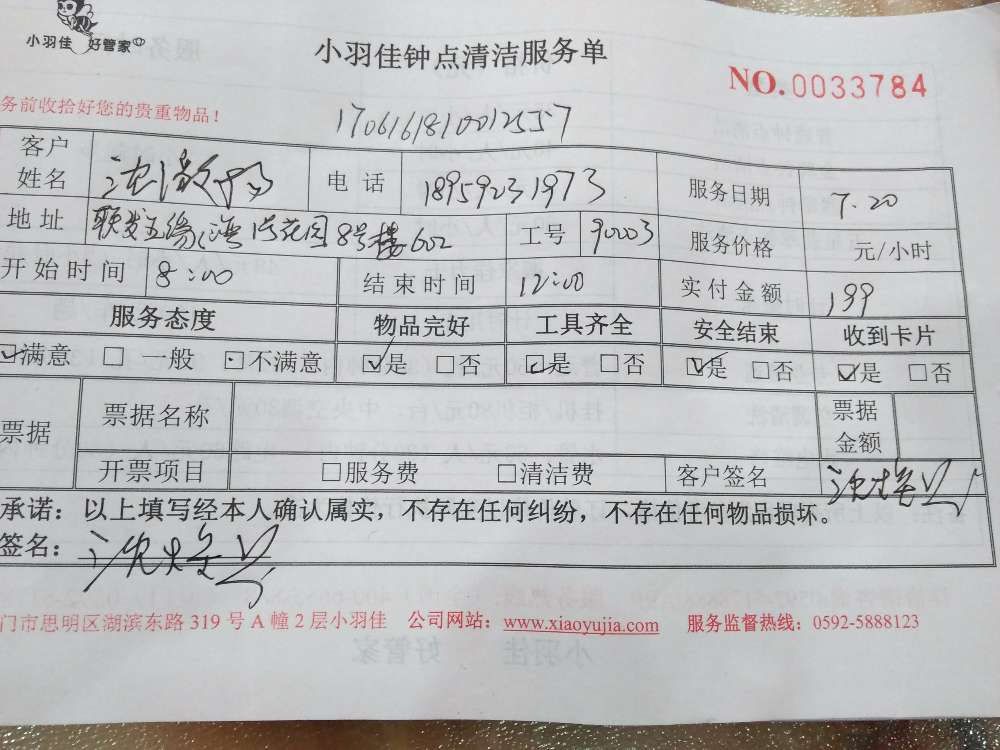 小羽佳 好管家
小羽佳钟点清洁服务单
NO.0033784
务前收拾好您的贵重物品！
170616810012557
客户姓名 电话 18959231973 服务日期 7.20
地址 联发五缘湾 花园8号楼602 工号 90003 服务价格 元/小时
开始时间 8:00 结束时间 12:00 实付金额 199
服务态度 物品完好 工具齐全 安全结束 收到卡片
☑满意 □一般 □不满意 ☑是 □否 ☑是 □否 ☑是 □否 ☑是 □否
票据 票据名称 票据金额
开票项目 □服务费 □清洁费 客户签名
承诺：以上填写经本人确认属实，不存在任何纠纷，不存在任何物品损坏。
签名：
门市思明区湖滨东路 319 号 A 幢 2 层小羽佳 公司网站：www.xiaoyujia.com 服务监督热线：0592-5888123